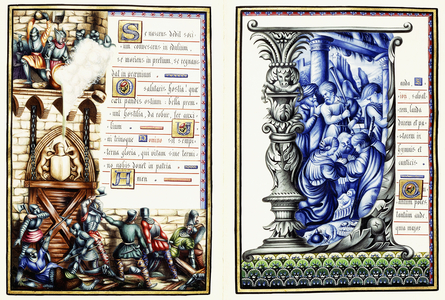 Se nascens dedit soci
um convescens in edulium,
se moriens in pretium, se regnans
dat in premium
salutaris hostia, quæ
cæli pandis ostium bella premu
nt hostilia, da robur, fer auxi
lium
trinoque Domino sit sempi
terna gloria, qui vitam sine termi
no nobis donet in patria
men.
auda
salvatorem
lauda
ducem et pa
storem in
hymnis et
canticis
potes
tantum aude
quia major